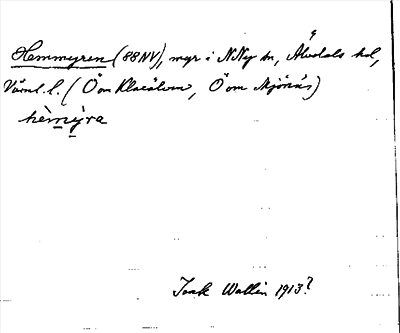 Hemmyren (88NV), myr i NNy sn, Älvdals hd,
Värml. l. (Ö om Klarälven, Ö om Mjönäs)
hèmýra
Isak Wallin 1913?